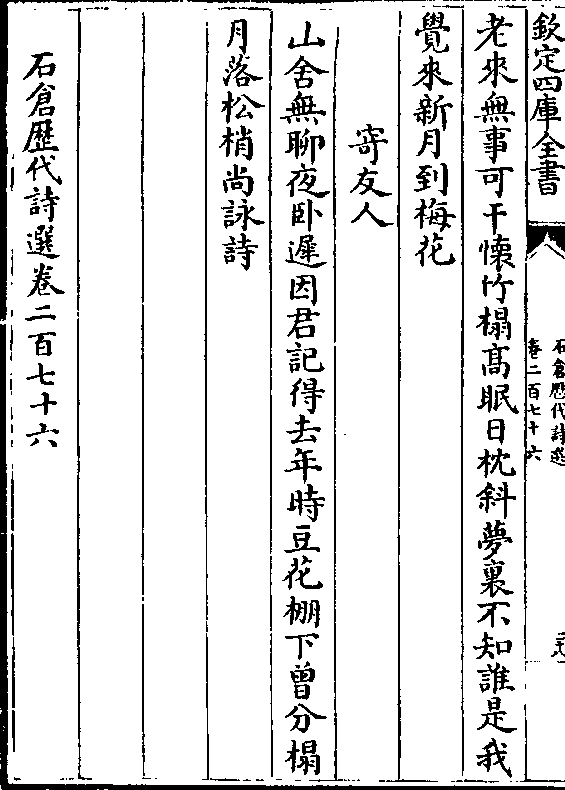 欽定四庫全書
石倉歴代詩選
卷二百七十六
老來無事可干懷竹榻髙眠日枕斜夢裏不知誰是我
覺來新月到梅花
寄友人
山舍無聊夜卧遲因君記得去年時豆花棚下曾分榻
月落松梢尚詠詩
石倉歴代詩選卷二百七十六